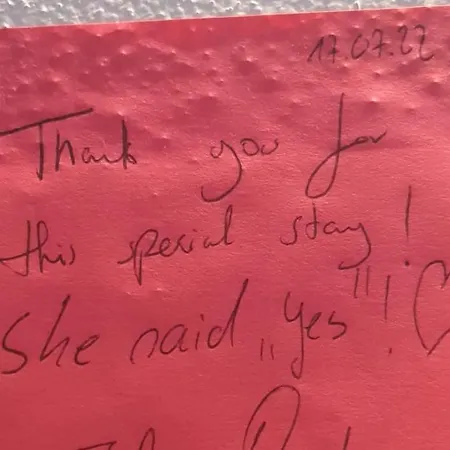 17.07.22
Thank you for
this special stay!
She said „Yes"! ♡